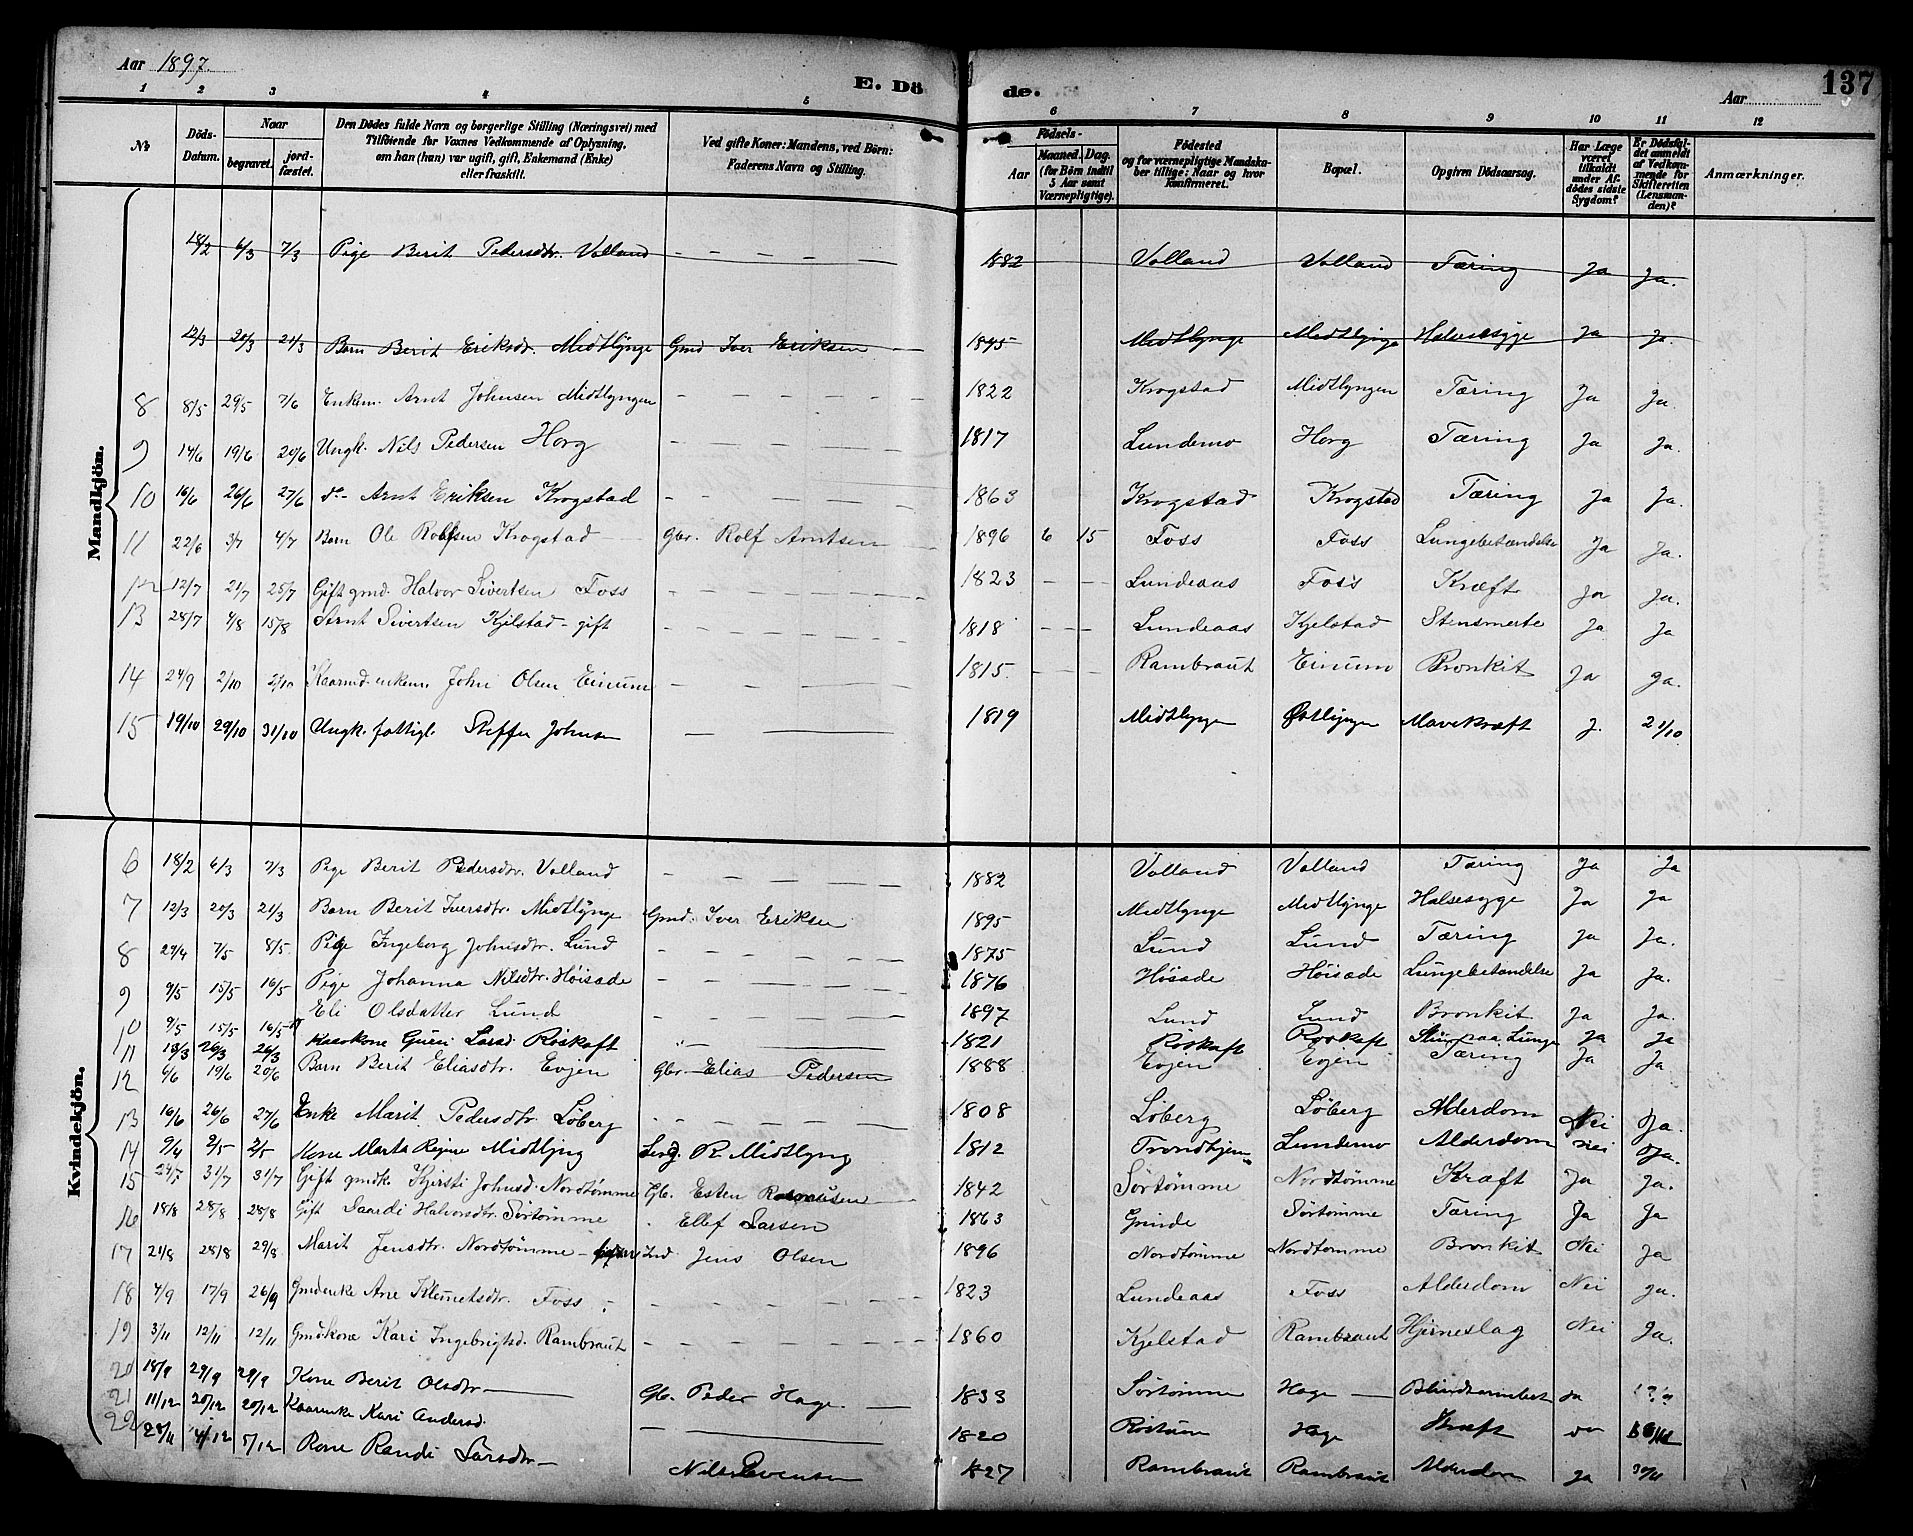 Aar 1897.
E. Dö de.
Aar
137
1 2 3 4 5 6 7 8 9 10 11 12
No
Döds-Datum.
Naar
begravet.
jord-fæstet.
Den Dödes fulde Navn og borgerlige Stilling (Næringsvei) med Tilföiende for Voxnes Vedkommende af Oplysning, om han (hun) var ugift, gift, Enkemand (Enke) eller fraskilt.
Ved gifte Koner: Mandens, ved Börn: Faderens Navn og Stilling.
Födsels-
Aar
Maaned. Dag.
(for Börn indtil 5 Aar samt Værnepligtige).
Födested og for værnepligtige Mandska-ber tillige: Naar og hvor konfirmeret.
Bopæl.
Opgiven Dödsaarsag.
Har Læge været tilkaldt under Af-dödes sidste Sygdom?
Er Dödsfal-det anmeldt af Vedkom-mende for Skifteretten (Lensman-den)?
Anmærkninger.
Mandkjön.
18/2 6/3 7/3 Pige Berit Pedersdtr. Volland — — — — — 1882 Volland Volland Tæring Ja Ja.
12/3 20/3 21/3 Barn Berit Eriksdtr. Midtlynge Gmd Iver Eriksen — 1895 Midtlynge Midtlynge Halssyge Ja Ja.
8 8/5 29/5 7/6 Enkem. Arnt Johnsen Midtlyngen — — — — — 1822 Krogstad Midtlyngen Tæring Ja Ja.
9 14/6 19/6 20/6 Ungk. Nils Pedersen Horg — — — — — 1817 Lundemo Horg Tæring Ja Ja.
10 16/6 26/6 27/6 do- Arnt Eriksen Krogstad — — — — — 1863 Krogstad Krogstad Tæring Ja Ja.
11 22/6 3/7 4/7 Barn Ole Rolfsen Krogstad — Gbr. Rolf Arntsen — 1896 6 15 Foss Foss Lungebetændelse Ja Ja.
12 12/7 21/7 25/7 Gift gmd. Halvor Sivertsen Foss — — — — — 1823 — — Lundeaas Foss Kræft Ja Ja.
13 28/7 4/8 15/8 Arnt Sivertsen Kjelstad - gift — — — — — 1818 — — Lundeaas Kjelstad Stensmerte Ja Ja
14 24/9 2/10 2/10 Kaarmd. enkem John Olsen Einum — — — 1815. — — Rambraut Einum Bronkit Ja Ja.
15 19/10 29/10 31/10 Ungk. fattigl. Steffen Johnsen — — 1819 Midtlyngen Østlyngen Mavekræft J. 21/10
Kvindekjön.
6 18/2 6/3 7/3 Pige Berit Pedersdtr. Volland — — — — — 1882 Volland Volland Tæring Ja Ja
7 12/3 20/3 21/3 Barn Berit Iversdtr. Midtlynge Gmd. Iver Eriksen 1895 Midtlynge Midtlynge Halsesyge Ja Ja
8 29/4 7/5 8/5 Pige Ingeborg Johnsdtr. Lund — — — — — 1875 Lund Lund Tæring Ja Ja.
9 9/5 15/5 16/5 Pige Johanna Nilsdtr. Høisade — — — — — 1876 Høisade Høisade Lungebetændelse Ja Ja.
10 9/5 15/5 16/5 Eli Olsdatter Lund — — — — — 1897 Lund Lund Bronkit Ja Ja.
11 13/3 26/3 26/3 Kaarkone Guru Larsd. Røskaft — — 1821 Røskaft Røskaft Sting paa Lunge Ja Ja
12 6/6 19/6 20/6 Barn Berit Eliasdtr. Evjen Gbr. Elias Pedersen 1888 Evjen Evjen Tæring Ja Ja
13 16/6 26/6 27/6 Enke Marit Pedersdtr. Løberg — — — — — 1808 Løberg Løberg Alderdom Nei Ja.
14 9/4 2/5 2/5 Kone Marta Regine Midtlyng R. Midtlyng 1812 Trondhjem Lundemo Alderdom nei Ja.
15 31/7 31/7 Gift gmdk. Kjersti Johnsd. Nordtømme Gb. Esten Rasmusen 1842 Sørtømme Nordtømme Kræft Ja Ja.
16 18/8 28/8 28/8 Gift Saardi Halvorsdtr. Sørtømme Ellef Larsen 1863 Grinde Sørtømme Tæring Ja Ja
17 21/8 28/8 29/8 Marit Jensdtr. Nordtømme — Ind Jens Olsen 1896 Nordtømme Nordtømme Bronkit Nei Ja
18 4/9 17/9 26/9 Gmdenke Ane Klemetsdtr. Foss — — — — — 1823 Lundeaas Foss Alderdom Nei Ja.
19 3/11 12/11 12/11 Gmdkone Kari Ingebrigtsd. Rambraut — — — — — 1860 Kjelstad Rambraut Hjerneslag Nei Ja.
20 18/9 29/9 29/9 Kone Berit Olsdtr — Gb. Peder Hage — 1833 Sørtømme Hage — Ja
21 11/12 20/12 20/12 Kaarenke Kari Andersd. — — 1820 Røstum Hage Kræft
22 24/11 4/12 5/12 Kone Randi Larsdtr — Nils Evensen 1827 Rambraut Rambraut Alderdom Ja 30/11